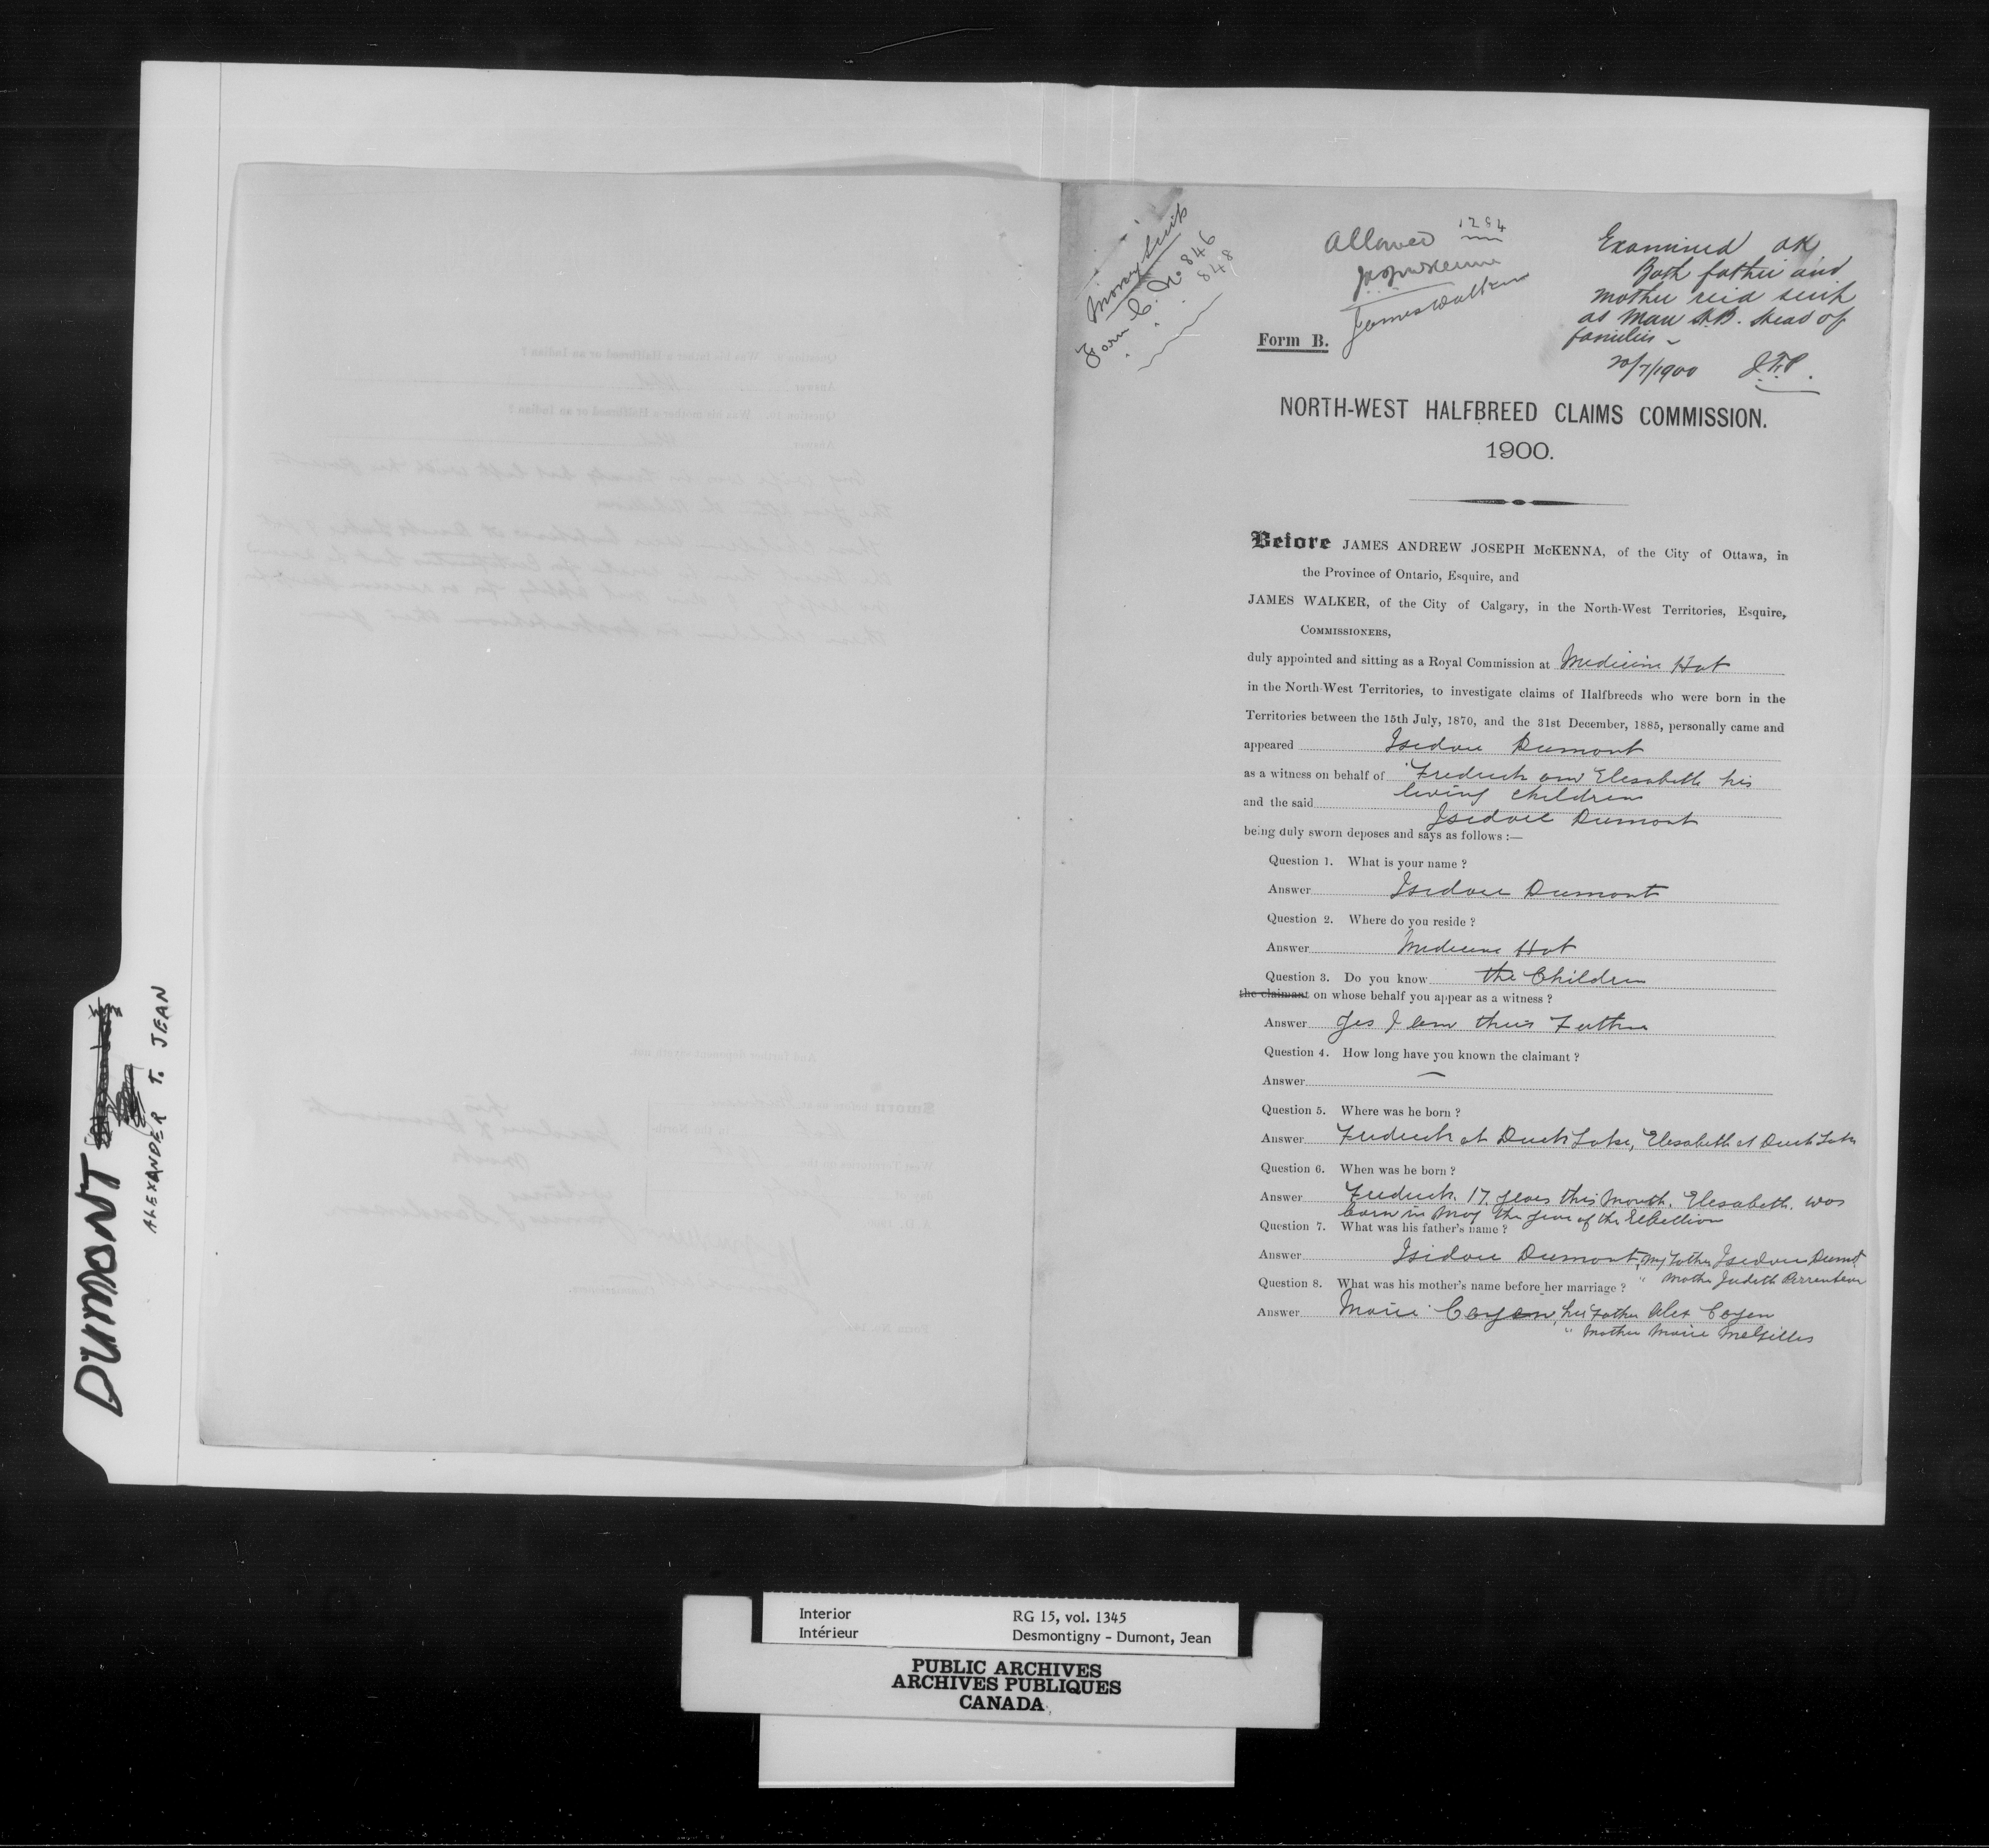 DUMONT
ALEXANDER T. JEAN
Money Scrip
Form C. No 846
848
Allowed 1284
James Walker
Examined OK
Both father and
mother recd scrip
as Man. H.B. Heads of
families -
20/7/1900 J.F.P.
Form B.
NORTH-WEST HALFBREED CLAIMS COMMISSION.
1900.
Before JAMES ANDREW JOSEPH McKENNA, of the City of Ottawa, in
the Province of Ontario, Esquire, and
JAMES WALKER, of the City of Calgary, in the North-West Territories, Esquire,
COMMISSIONERS,
duly appointed and sitting as a Royal Commission at Medicine Hat
in the North-West Territories, to investigate claims of Halfbreeds who were born in the
Territories between the 15th July, 1870, and the 31st December, 1885, personally came and
appeared Isidore Dumont
as a witness on behalf of Fredrick and Elesabeth his
living children
and the said Isidore Dumont
being duly sworn deposes and says as follows :—
Question 1. What is your name ?
Answer Isidore Dumont
Question 2. Where do you reside ?
Answer Medicine Hat
Question 3. Do you know the Children
the claimant on whose behalf you appear as a witness ?
Answer Yes I am their Father
Question 4. How long have you known the claimant ?
Answer —
Question 5. Where was he born ?
Answer Fredrick at Duck Lake, Elesabeth at Duck Lake
Question 6. When was he born ?
Answer Fredrick 17 years this Month. Elesabeth was
born in May the year of the Rebellion
Question 7. What was his father's name ?
Answer Isidore Dumont, My Father Isidore Dumont
" Mother Judith Parenteau
Question 8. What was his mother's name before her marriage ?
Answer Marie Cayen, her Father Alex Cayen
" Mother Marie McGilles
Interior
Intérieur
RG 15, vol. 1345
Desmontigny - Dumont, Jean
PUBLIC ARCHIVES
ARCHIVES PUBLIQUES
CANADA